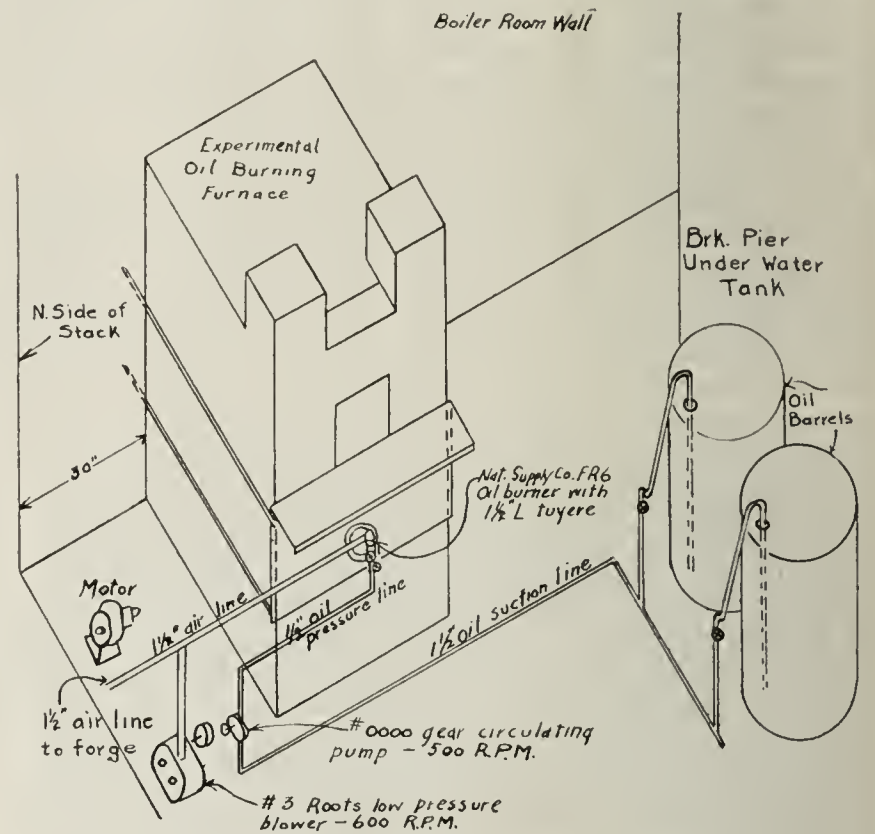 Boiler Room Wall
Experimental
Oil Burning
Furnace
Brk. Pier
Under Water
Tank
N. Side of
Stack
Oil
Barrels
30"
Nat. Supply Co. FR6
Oil burner with
1½" L tuyere
Motor
1½" air line
½" oil
pressure line
1½" Oil suction line
1½" air line
to forge
#0000 gear circulating
pump - 500 R.P.M.
#3 Roots low pressure
blower - 600 R.P.M.